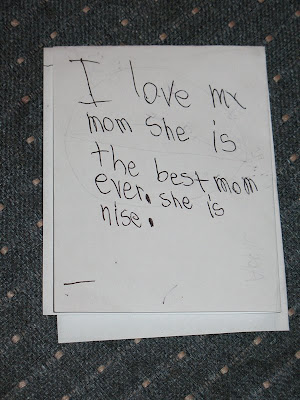 I love my
mom she is
the best mom
ever. she is
nise.